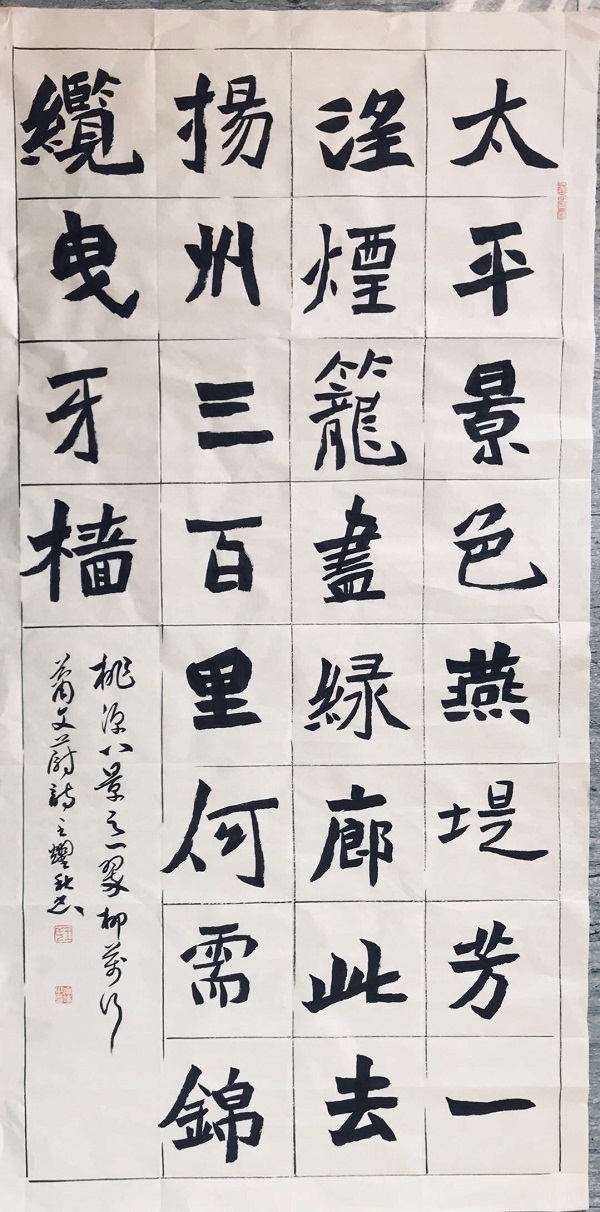 太平景色燕堤芳一
煙籠盡緑廊此去
揚州三百里何需錦
纜曳牙檣
桃源八景之一翠柳萬行
蕭文蔚詩 王耀秋书